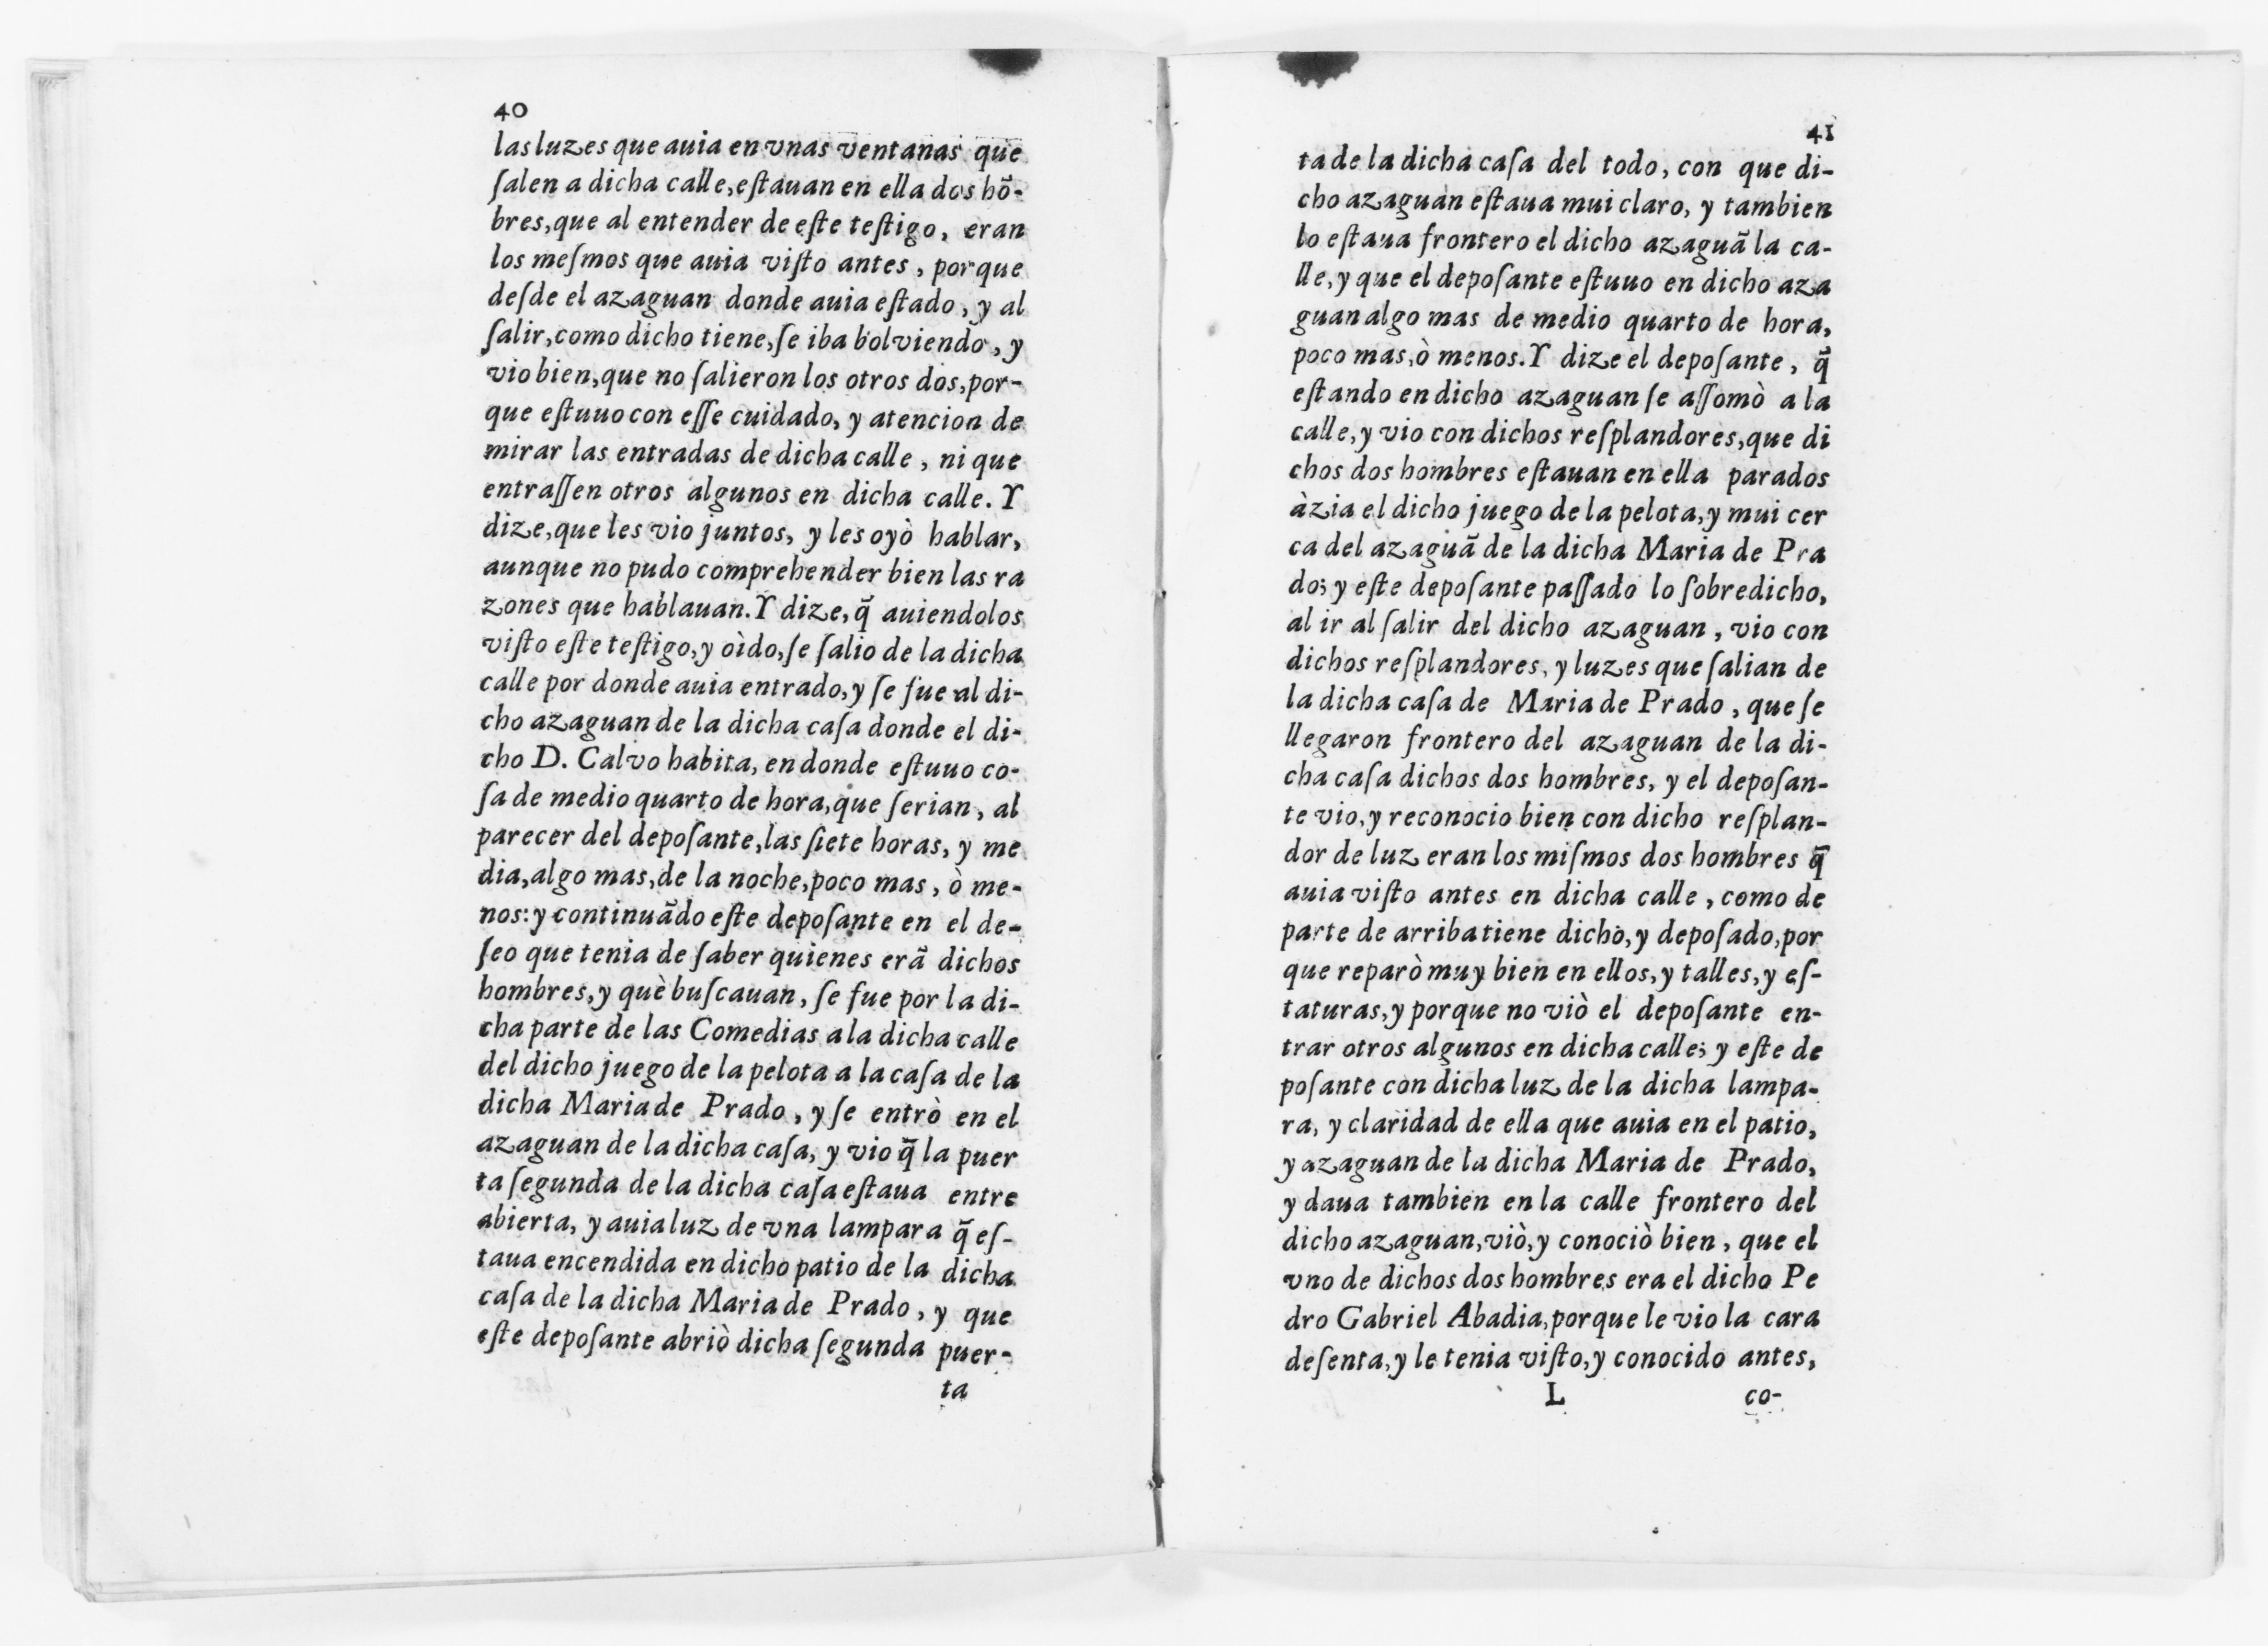 40
las luzes que auia en vnas ventanas que
ſalen a dicha calle, eſtauan en ella dos hõ-
bres, que al entender de eſte teſtigo, eran
los meſmos que auia viſto antes, porque
deſde el azaguan donde auia eſtado, y al
ſalir, como dicho tiene, ſe iba bolviendo, y
vio bien, que no ſalieron los otros dos, por-
que eſtuuo con eſſe cuidado, y atencion de
mirar las entradas de dicha calle, ni que
entraſſen otros algunos en dicha calle. Y
dize, que les vio juntos, y les oyò hablar,
aunque no pudo comprehender bien las ra
zones que hablauan. Y dize, q̃ auiendolos
viſto eſte teſtigo, y oìdo, ſe ſalio de la dicha
calle por donde auia entrado, y ſe fue al di-
cho azaguan de la dicha caſa donde el di-
cho D. Calvo habita, en donde eſtuuo co-
ſa de medio quarto de hora, que ſerian, al
parecer del depoſante, las ſiete horas, y me
dia, algo mas, de la noche, poco mas, ò me-
nos: y continuãdo eſte depoſante en el de-
ſeo que tenia de ſaber quienes erã dichos
hombres, y què buſcauan, ſe fue por la di-
cha parte de las Comedias a la dicha calle
del dicho juego de la pelota a la caſa de la
dicha Maria de Prado, y ſe entrò en el
azaguan de la dicha caſa, y vio q̃ la puer
ta ſegunda de la dicha caſa eſtaua entre
abierta, y auia luz de vna lampara q̃ eſ-
taua encendida en dicho patio de la dicha
caſa de la dicha Maria de Prado, y que
eſte depoſante abriò dicha ſegunda puer-
ta
41
ta de la dicha caſa del todo, con que di-
cho azaguan eſtaua mui claro, y tambien
lo eſtaua frontero el dicho azaguã la ca-
lle, y que el depoſante eſtuuo en dicho aza
guan algo mas de medio quarto de hora,
poco mas, ò menos. Y dize el depoſante, q̃
eſtando en dicho azaguan ſe aſſomò a la
calle, y vio con dichos reſplandores, que di
chos dos hombres eſtauan en ella parados
àzia el dicho juego de la pelota, y mui cer
ca del azaguã de la dicha Maria de Pra
do; y eſte depoſante paſſado lo ſobredicho,
al ir al ſalir del dicho azaguan, vio con
dichos reſplandores, y luzes que ſalian de
la dicha caſa de Maria de Prado, que ſe
llegaron frontero del azaguan de la di-
cha caſa dichos dos hombres, y el depoſan-
te vio, y reconocio bien con dicho reſplan-
dor de luz eran los miſmos dos hombres q̃
auia viſto antes en dicha calle, como de
parte de arriba tiene dicho, y depoſado, por
que reparò muy bien en ellos, y talles, y eſ-
taturas, y porque no viò el depoſante en-
trar otros algunos en dicha calle; y eſte de
poſante con dicha luz de la dicha lampa-
ra, y claridad de ella que auia en el patio,
y azaguan de la dicha Maria de Prado,
y daua tambien en la calle frontero del
dicho azaguan, viò, y conociò bien, que el
vno de dichos dos hombres era el dicho Pe
dro Gabriel Abadia, porque le vio la cara
deſenta, y le tenia viſto, y conocido antes,
L co-